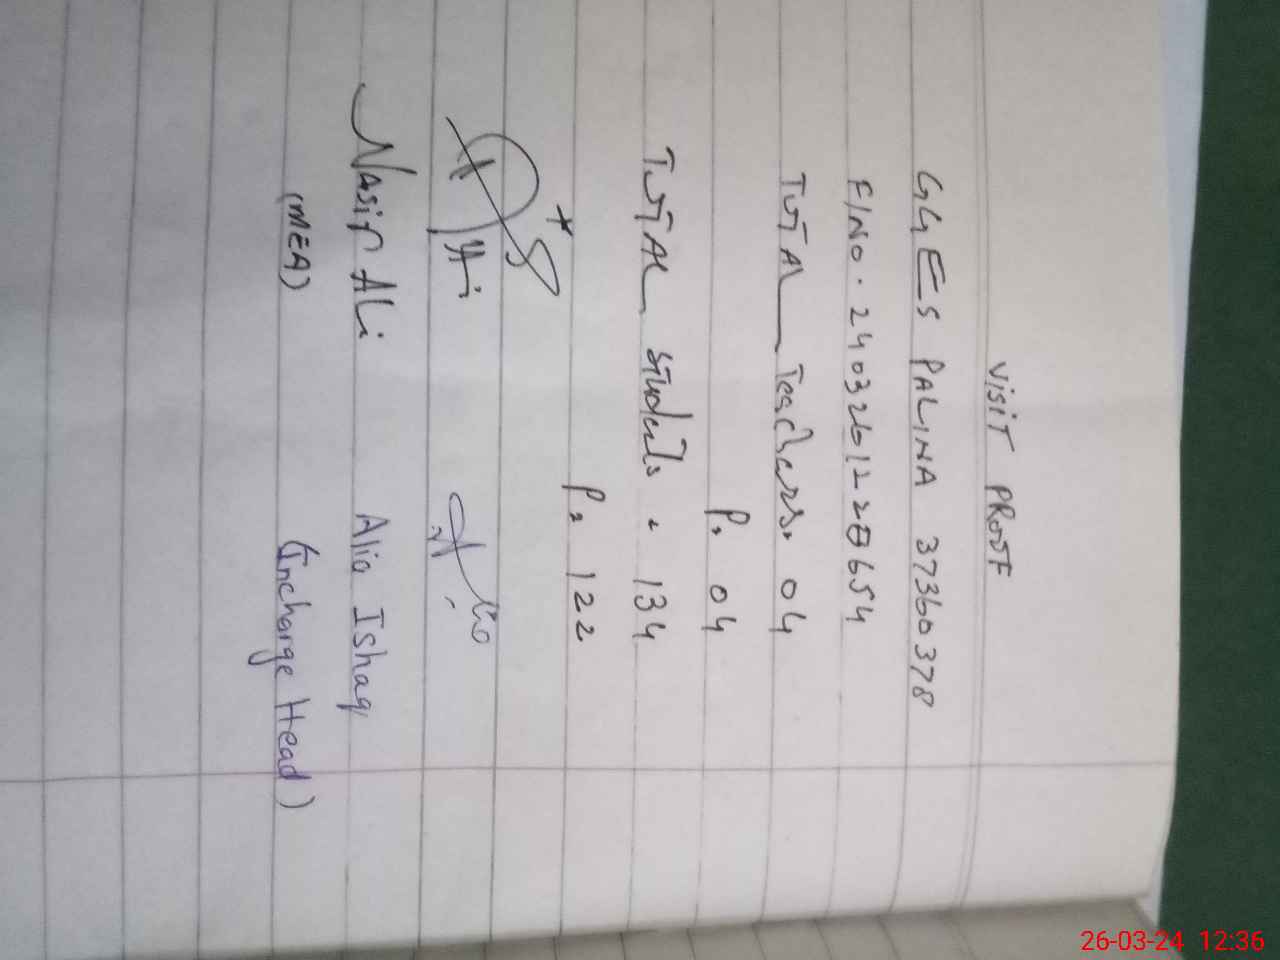 VISIT PROOF
GGES PALINA 37360378
F/No. 2403261228654
TOTAL Teachers. 04
P. 04
TOTAL students. 134
P. 122
Nasir Ali
Alia Ishaq
(MEA)
(Incharge Head)
26-03-24 12:36